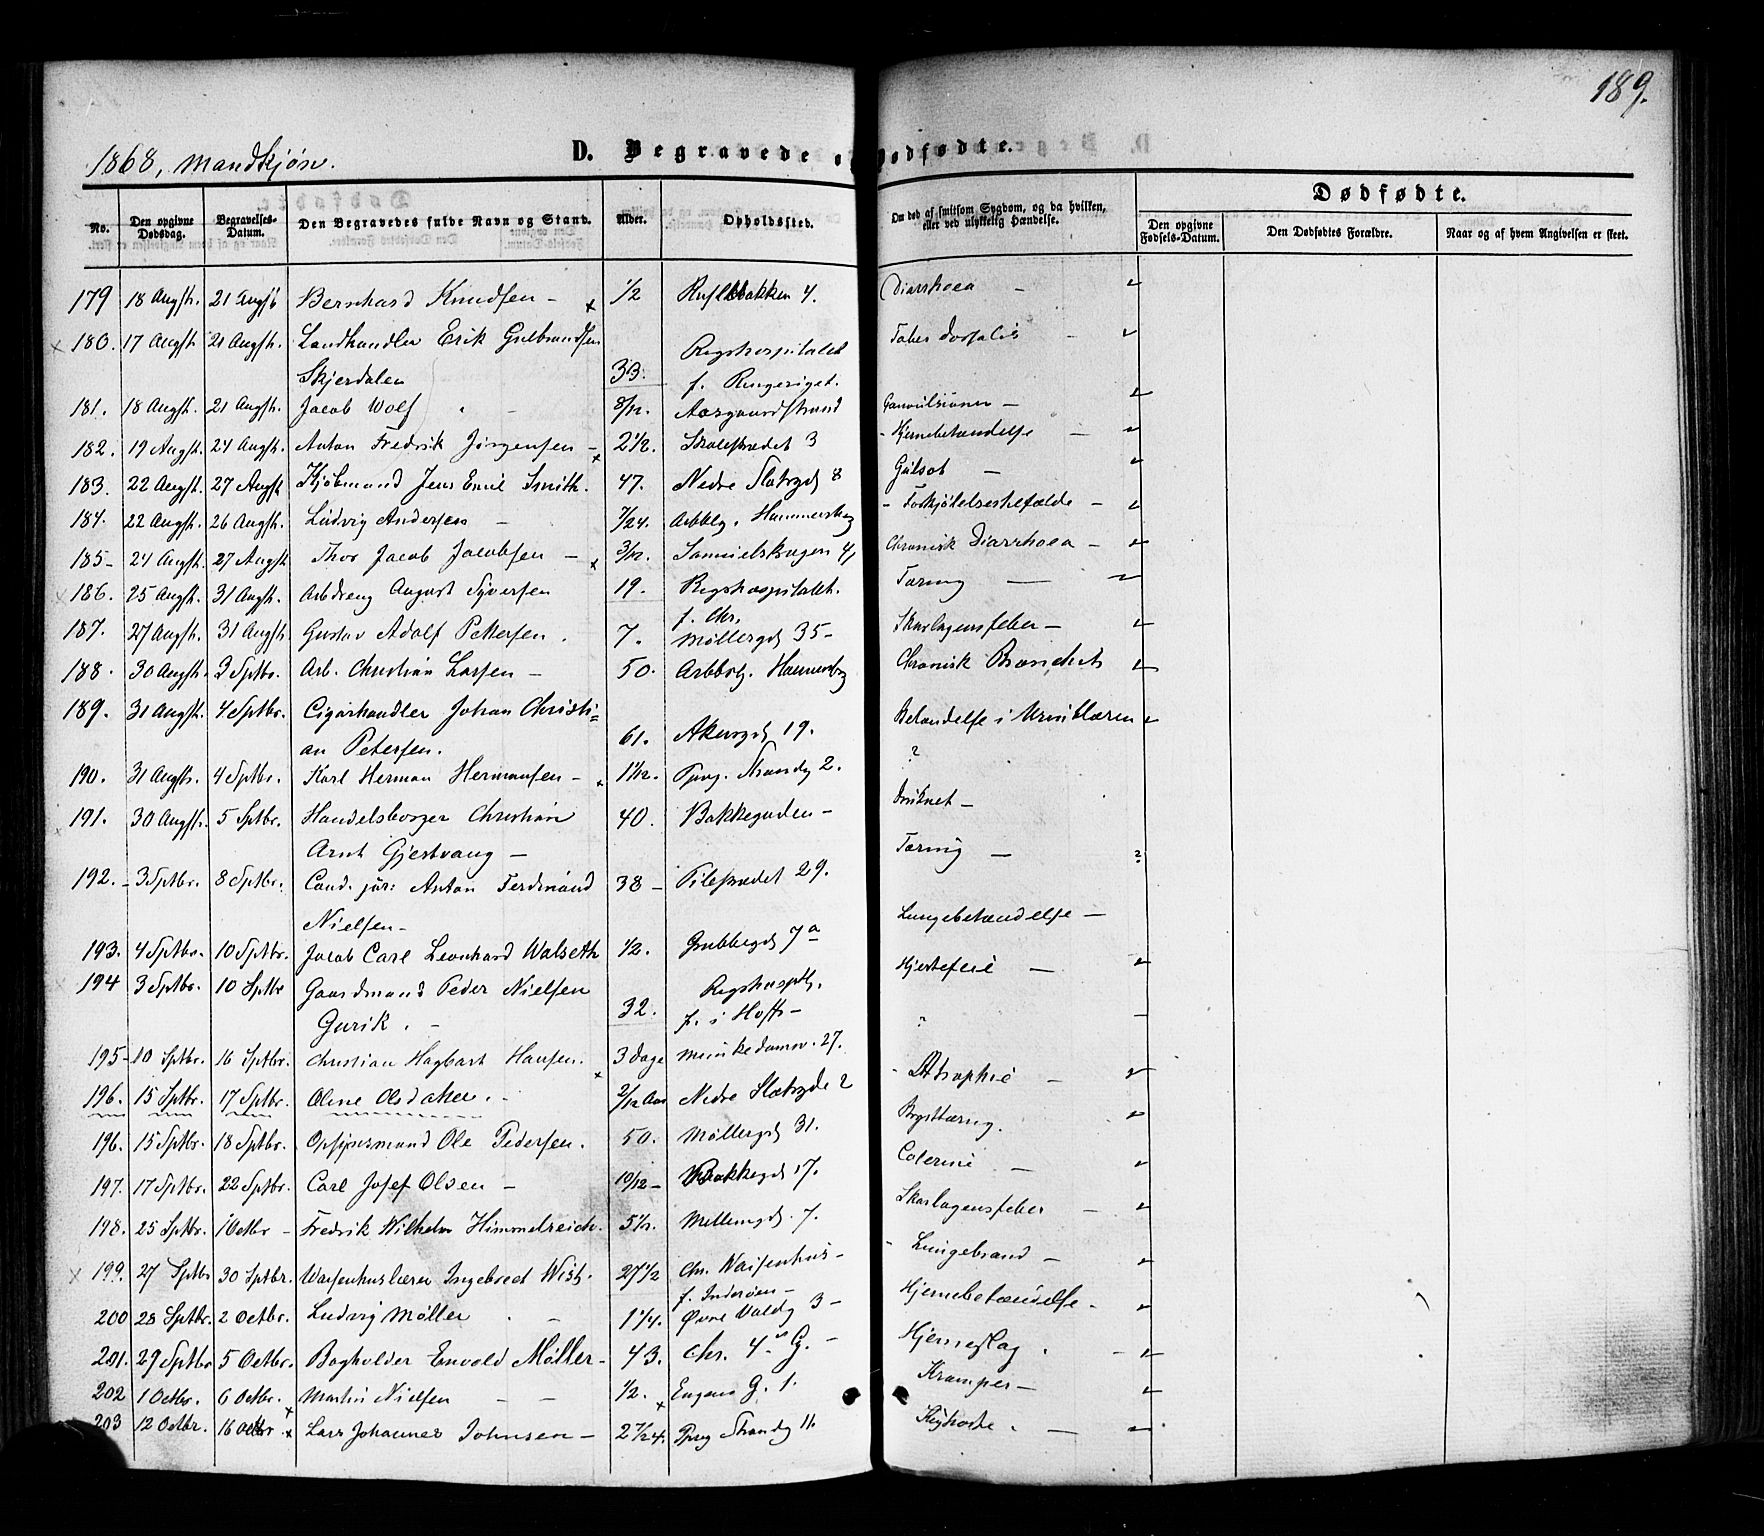 189.
1868, Mandkjøn.
D. Begravede o Dødfødte.
No. Den opgivne Dødsdag. Begravelses-Datum. Den Begravedes fulde Navn og Stand. Alder. Opholdssted. Om død af smitsom Sygdom, og da hvilken, eller ved ulykkelig Hændelse. Dødfødte. Den opgivne Fødsels-Datum. Den Dødfødtes Forældre. Naar og af hvem Angivelsen er skeet.
179 18 Augst. 21 Augst Bernhard Knudsen - 1/2 bakken 4. Diarrhoea -
180. 17 Augst. 21 Augst. Landhandler Erik Gulbrandsen Rigshospitalet Tabes dorsalis -
Skjerdalen 33. f. Ringeriget.
181. 18 Augst. 21 Augst. Jacob Wolf " - 8/12. Aasgaardstrand Convulsioner -
182. 19 Augst. 24 Augst. Anton Fredrik Jørgensen - 2 1/2. Skolestrædet 3 - Hjernebetændelse -
183. 22 Augst. 27 Augst Kjøbmand Jens Emil Smith. 47. Nedre Slotsgd 8 Gulsot -
184. 22 Augst. 26 Augst. Ludvig Andersen - 7/24. Arbblg. Hammersbg - Forkjølelsestilfælde -
185- 24 Augst. 27 Augst Thor Jacob Jacobsen - 3/12. Samuelskogen 4 Chronisk Diarrhoea -
186. 25 Augst. 31 Augst. Arbdreng August Syversen 19. Rigshospitalet. Tæring -
f. Chr.
187. 27 Augst. 31 Augst. Gustav Adolf Pettersen. 7. Møllergd 35- Skarlagensfeber -
188. 30 Augst. 3 Sptbr. Arb. Christian Larsen - 50. Arbbolg. Hammersbg Chronisk Bronchit
189. 31 Augst. 4 Sptbr. Cigarhandler Johan Christi=
an Petersen. 61. Akersgd 19. Betændelse i Urinblæren
190. 31 Augst. 4 Sptbr. Karl Herman Hermansen - 1 1/12. Strandg 2. ?
191. 30 Augst. 5 Sptbr. Handelsborger Christian 40. Bakkegaden - druknet -
Arnt Gjestvang -
192. - 3 Sptbr. 8 Sptbr. Cand. jur: Anton Ferdinand 38 - Pilestrædet 29. Tæring - ?
Nielsen -
193. 4 Sptbr. 10 Sptbr. Jacob Carl Leonhard Walseth 1/2. Grubbegd 7a Lungebetændelse -
194 3 Sptbr. 10 Sptbr Gaardmand Peder Nielsen Rigshosptl. Hjertefeil -
Gurik. - 32. f. i Hoff -
195- 10 Sptbr. 16 Sptbr. Christian Hagbart Hansen. 3 dage Munkedamsv. 27. "
196. 15 Sptbr. 17 Sptbr. Oline Olsdatter. - 2/12 Aar Nedre Slotsgde 2 - Atrophie -
196. 15 Sptbr. 18 Sptbr. Opsynsmand Ole Pedersen. 50. Møllergd 31. Brysttæring.
197. 17 Sptbr. 22 Sptbr. Carl Josef Olsen - 10/12 - Bakkegd 17. Colerine -
198. 25 Sptbr. 1 Octbr - Fredrik Wilhelm Himmelreich. 5 1/2. Mellemgd. 7. Skarlagensfeber -
199. 27 Sptbr 30 Sptbr. Waisenhuslærer Ingebrect Wist. 27 1/2 Chr. Waisenhus - - Lungebrand -
f. Inderøen -
200 28 Sptbr. 2 Octbr. Ludvig Møller - 1 1/4. Øvre Voldg 3 - Hjernebetændelse -
201. 29 Sptbr 5 Octbr. Bogholder Envold Møller - 43. Chr. 4. G. - Hjerneslag.
202 1 Octbr. 6 Octbr. Martin Nielsen - - 1/2. Engens G. 1. Kramper -
203 12 Octbr. 16 Octbr Lars Johannes Johnsen - 2 7/24. Strandg 11. Kighoste. -